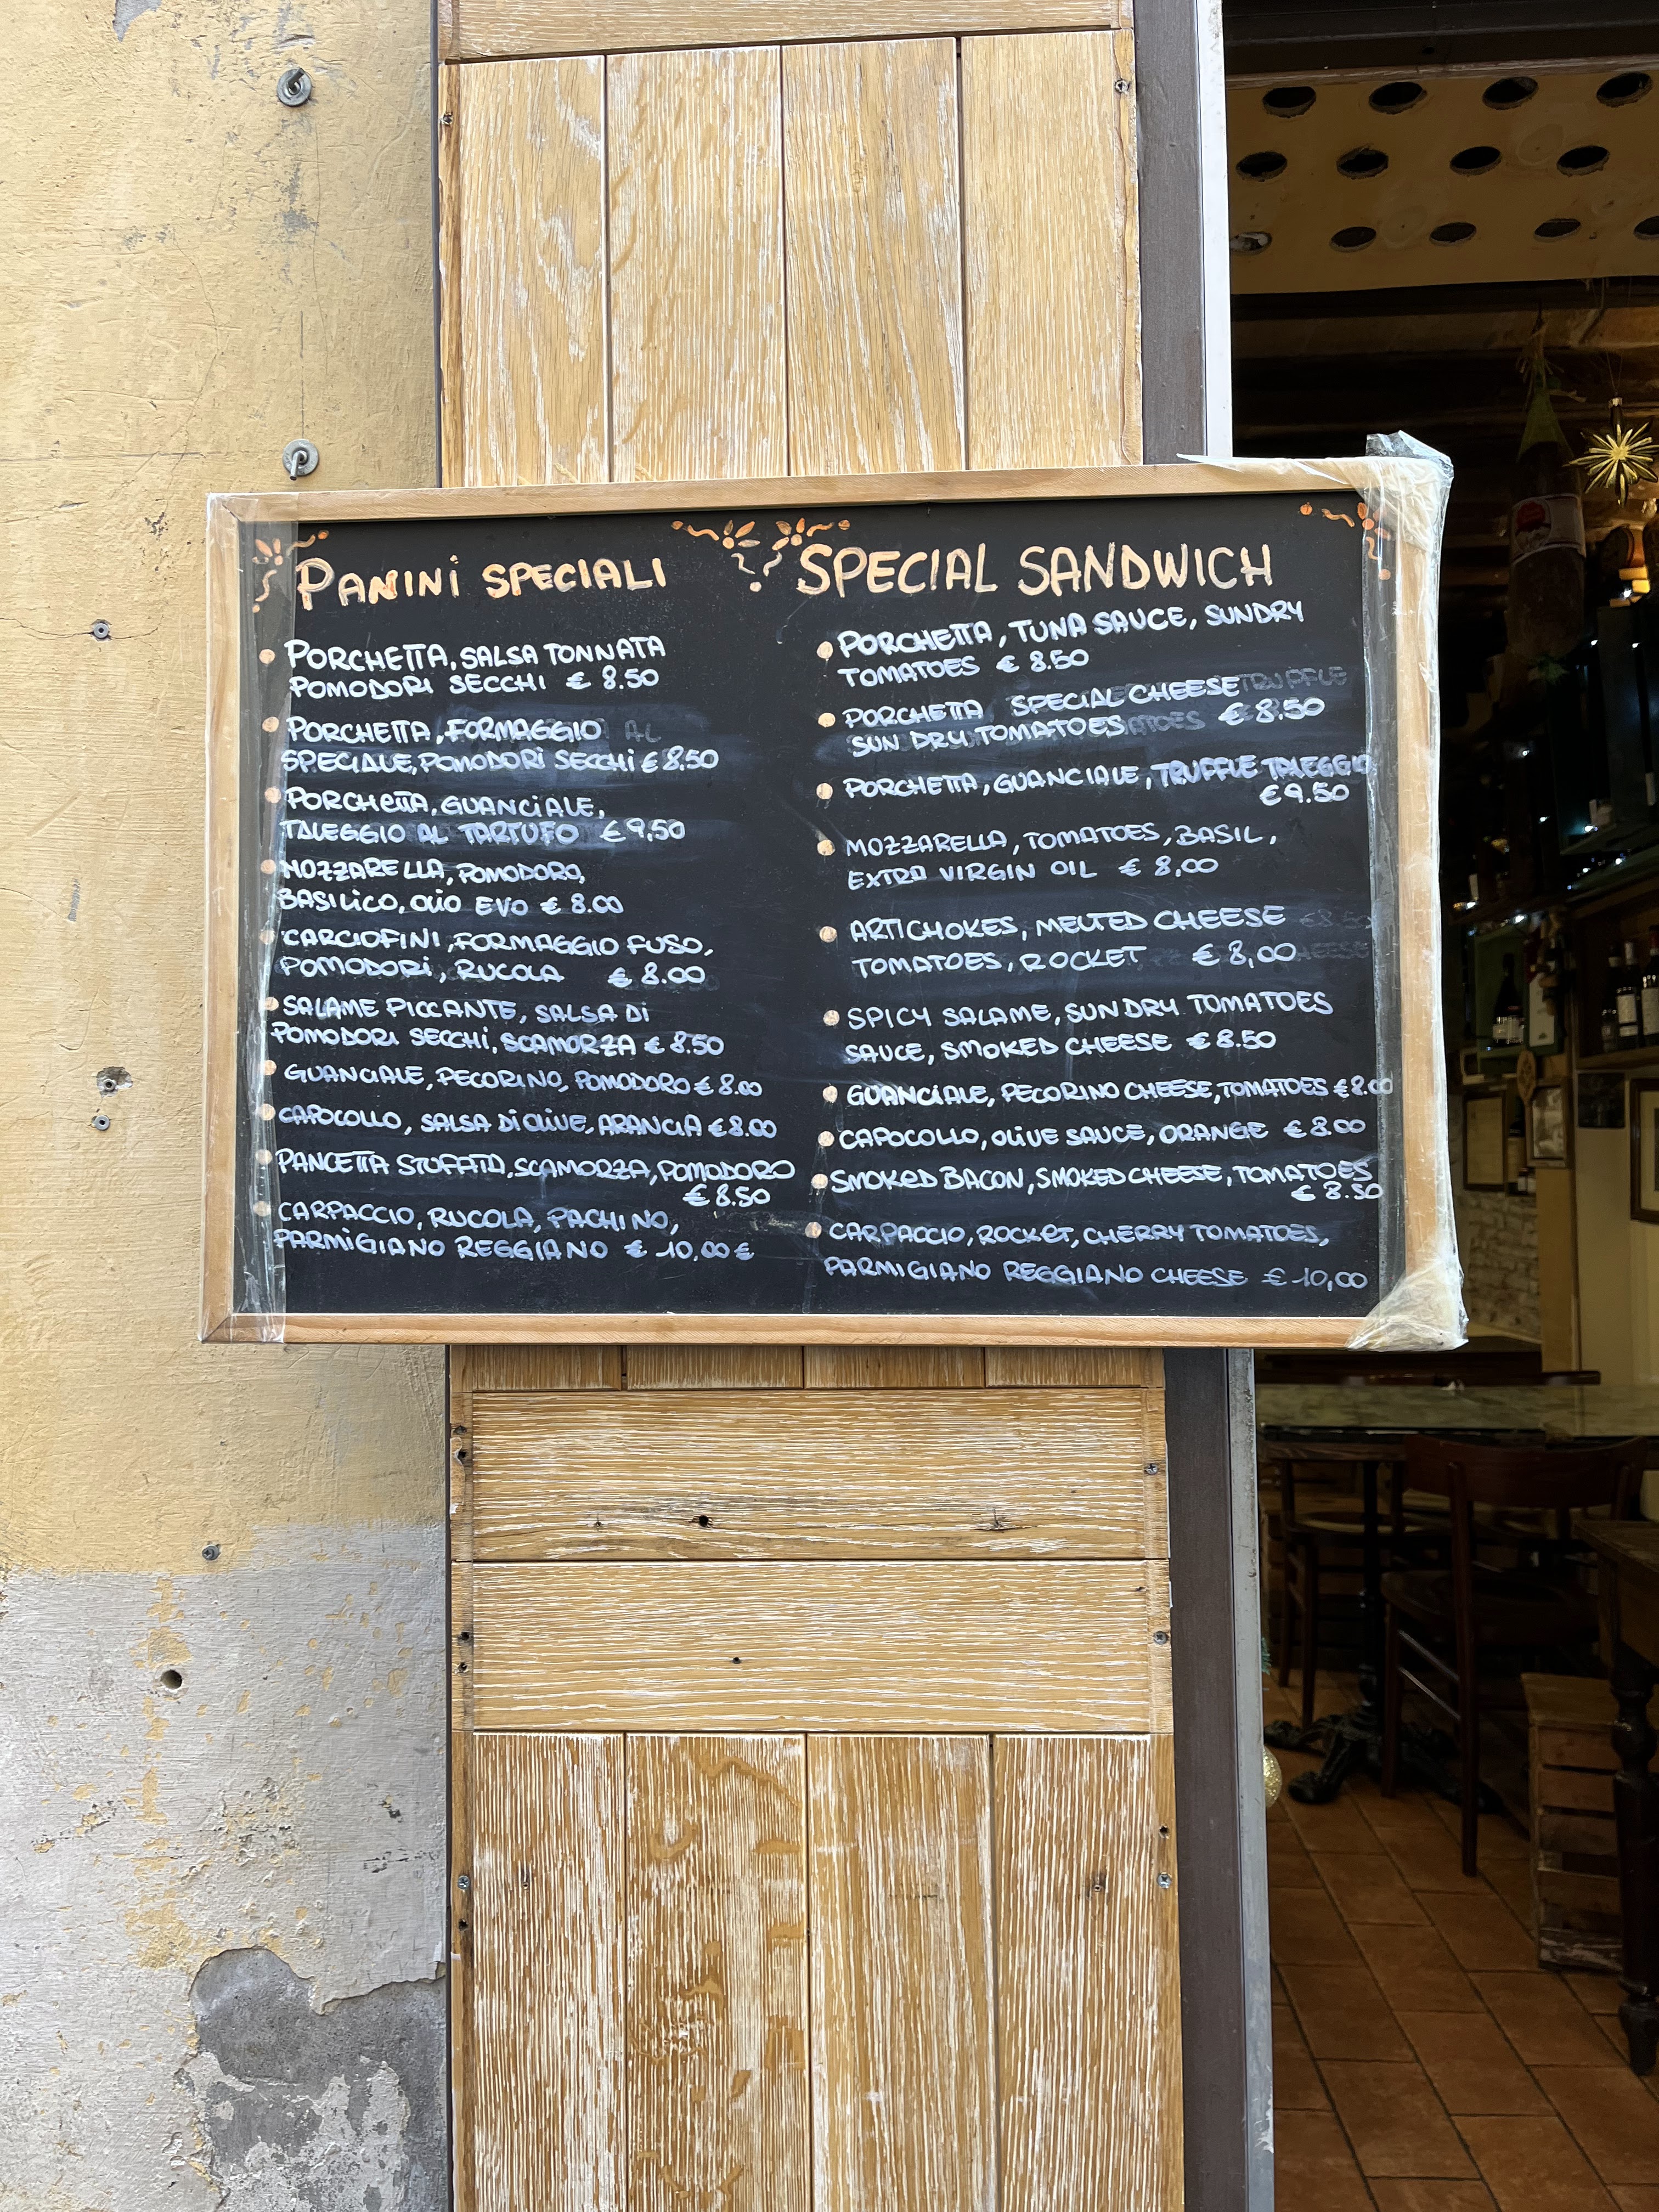 PANINI SPECIALI
PORCHETTA, SALSA TONNATA
POMODORI SECCHI € 8.50
PORCHETTA, FORMAGGIO AL
SPECIALE, POMODORI SECCHI € 8.50
PORCHETTA, GUANCIALE,
TALEGGIO AL TARTUFO € 9,50
MOZZARELLA, POMODORO,
BASILICO, OLIO EVO € 8.00
CARCIOFINI, FORMAGGIO FUSO,
POMODORI, RUCOLA € 8.00
SALAME PICCANTE, SALSA DI
POMODORI SECCHI, SCAMORZA € 8.50
GUANCIALE, PECORINO, POMODORO € 8.00
CAPOCOLLO, SALSA DI OLIVE, ARANCIA € 8.00
PANCETTA STUFATA, SCAMORZA, POMODORO
€ 8.50
CARPACCIO, RUCOLA, PACHINO,
PARMIGIANO REGGIANO € 10,00 €
SPECIAL SANDWICH
PORCHETTA, TUNA SAUCE, SUNDRY
TOMATOES € 8.50
PORCHETTA SPECIAL CHEESE TRUFFLE
SUN DRY TOMATOES € 8.50
PORCHETTA, GUANCIALE, TRUFFLE TALEGGIO
€ 9.50
MOZZARELLA, TOMATOES, BASIL,
EXTRA VIRGIN OIL € 8,00
ARTICHOKES, MELTED CHEESE €8.50
TOMATOES, ROCKET € 8,00 CHEESE
SPICY SALAME, SUNDRY TOMATOES
SAUCE, SMOKED CHEESE € 8.50
GUANCIALE, PECORINO CHEESE, TOMATOES € 8.00
CAPOCOLLO, OLIVE SAUCE, ORANGE € 8.00
SMOKED BACON, SMOKED CHEESE, TOMATOES
€ 8.50
CARPACCIO, ROCKET, CHERRY TOMATOES,
PARMIGIANO REGGIANO CHEESE € 10,00